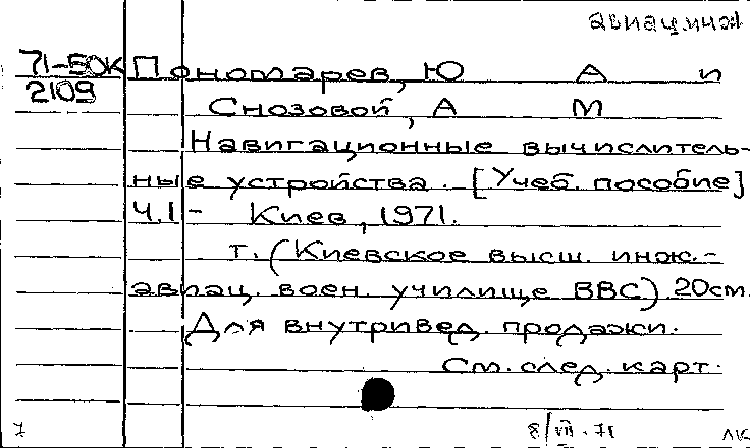 авиац. инж
71-50К Пономарев, Ю А и
2109
Снозовой, А М
Навигационные вычислитель-
ные устройства. - [Учеб. пособие]
Ч.1 - Киев, 1971.
т. (Киевское высш. инж.-
авиац. воен. училище ВВС) 20см.
Для внутривед. продажи.
См. след. карт.
7 8/VII-71